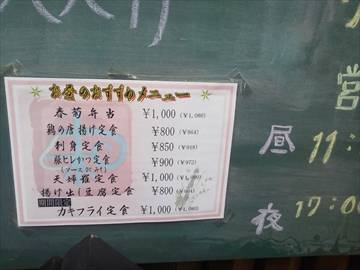 お昼のおすすめメニュー
春菊弁当 ¥1,000(¥1,080)
鶏の唐揚げ定食 ¥800(¥864)
刺身定食 ¥850(¥918)
豚ヒレかつ定食 ¥900(¥972)
天婦羅定食 ¥1,000(¥1,080)
揚げ出し豆腐定食 ¥800(¥864)
期間限定
カキフライ定食 ¥1,000(¥1,080)
営
昼 11:
夜 17:00